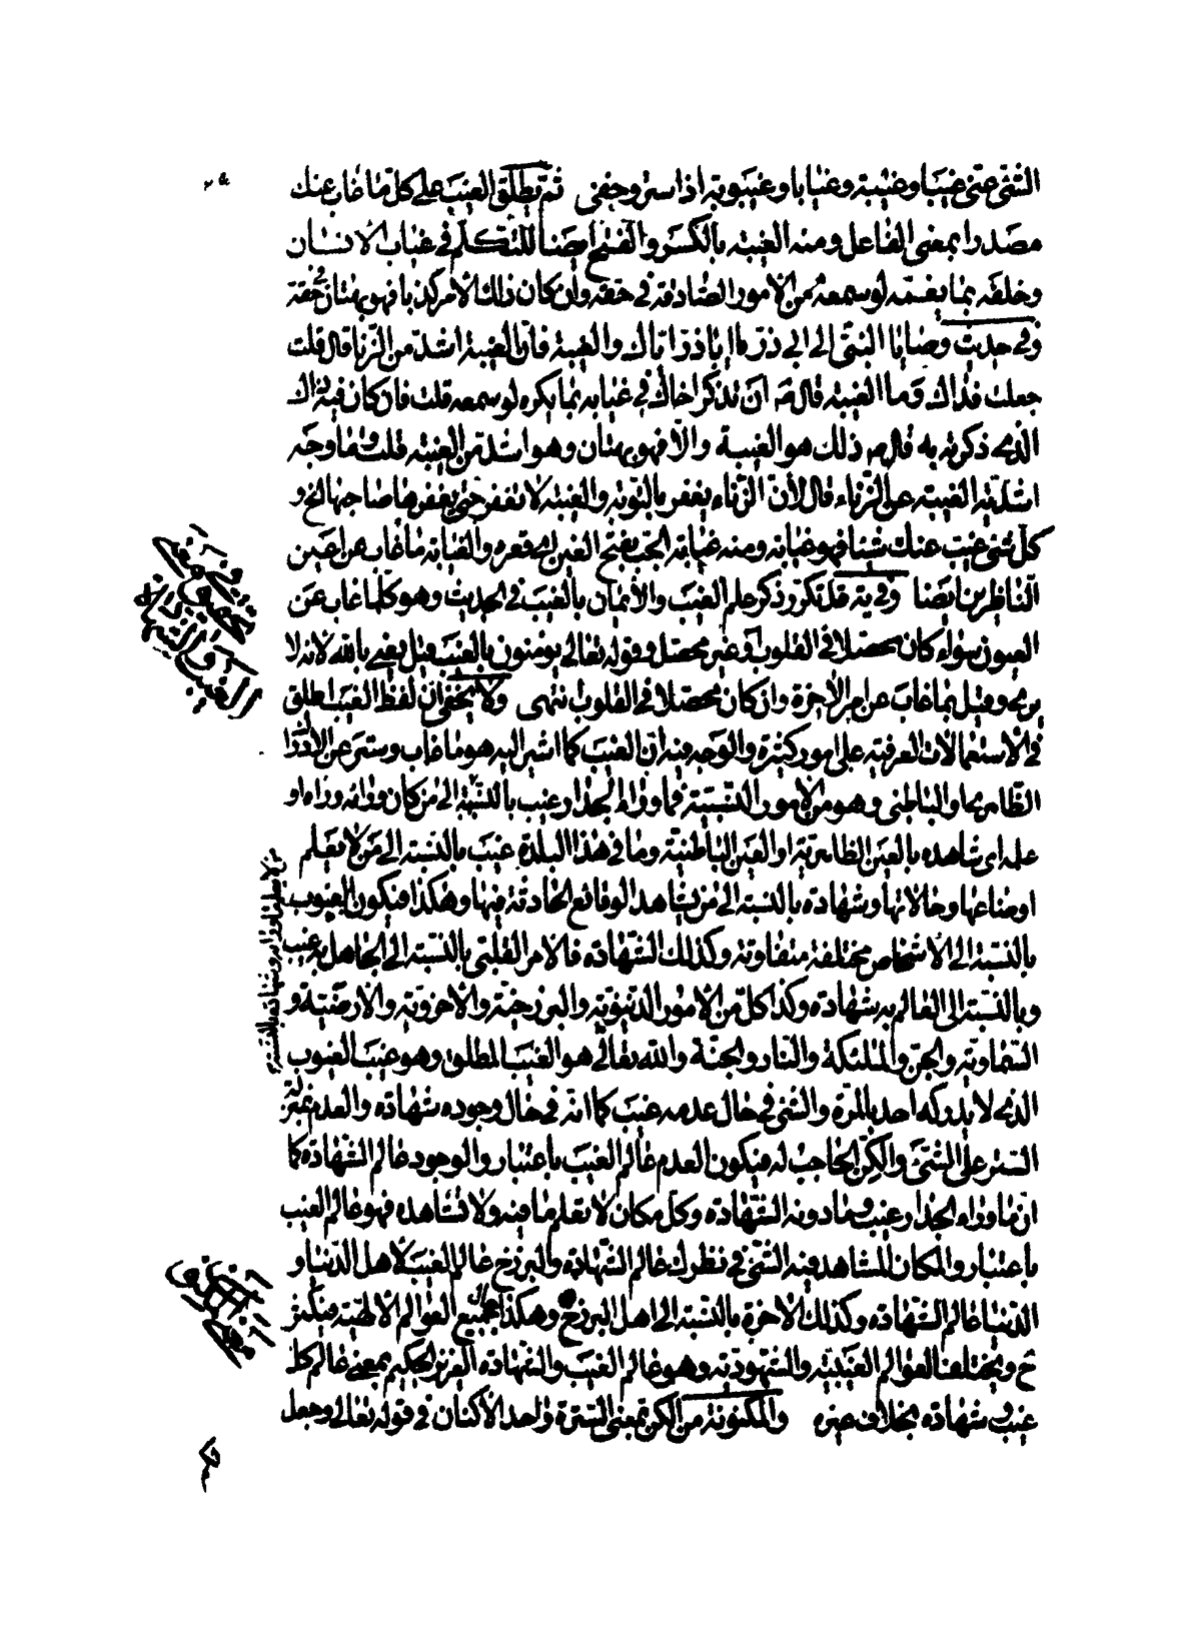 الشئ عنى غيبا وغيبة وغيابا وغيبوبة اذا استر وخفى ثم يطلق الغيب على كل ما غاب عنك
مصدرا بمعنى الفاعل ومنه الغيبة بالكسر والفتح ايضا للتكلم فى غياب الانسان
وخلفه بما يغمه لو سمعه من الامور الصادقة فى حقه وان كان ذلك الامر كذبا فهو بهتان فى حقه
وفى حديث وصايا النبى الى ابى ذر يا اباذر اياك والغيبة فان الغيبة اشد من الزنا قال قلت
جعلت فداك وما الغيبة قال ص ان تذكر اخاك فى غيابه بما يكره لو سمعه قلت فان كان فيه ذاك
الذى ذكرته به قال ص ذلك هو الغيبة والا فهو بهتان وهو اشد من الغيبة قلت وما وجه
اشدية الغيبة عن الزناء قال لأن الزناء يغفر بالتوبة والغيبة لا تغفر حتى يغفرها صاحبها الخ و
كل شئ غيب عنك شيئا فهو غيابة ومنه غيابة الجب بفتح الغين اى قعره والغيابة ما غاب عن اعين
الناظرين ايضا وفى ية قد تكرر ذكر علم الغيب والايمان بالغيب فى الحديث وهو كلما غاب عن
العيون سواء كان محصلا فى القلوب او غير محصل وقوله تعالى يؤمنون بالغيب قيل يعنى بالله لانه لا
يرى وقيل بما غاب عن امر الاخرة وان كان محصلا فى القلوب انتهى ولا يخفى ان لفظ الغيب اطلق
فى الاستعمالات العرفية على امور كثيرة والوجه فيه ان الغيب كما اشير اليه هو ما غاب وستر عن
الظاهرى او الباطنى وهو من الامور النسبية فما وراء الجدار غيب بالنسبة الى من كان وراءه
علمه اى شاهده بالعين الظاهرية او العين الباطنية وما فى هذا البلدة غيب بالنسبة الى من لا يعلم
اوضاعها وحالاتها وشهادة بالنسبة الى من يشاهد الوقايع الحادثة فيها وهكذا فيكون الغيوب
بالنسبة الى الاشخاص مختلفة متفاوتة وكذلك الشهادة فالامر القلبى بالنسبة الى الجاهل به غيب
وبالنسبة الى العالم به شهادة وكذا كل من الامور الدنيوية والبرزخية والاخروية والارضية و
السماوية والجن والملئكة والنار والجنة والله تعالى هو الغيب المطلق وهو غيب الغيوب
الذى لا يدركه احد بالمرة والشئ فى حال عدمه غيب كما انه فى حال وجوده شهادة والعدم بمنزلة
الستر على الشئ والكن الحاجب له فيكون العدم عالم الغيب باعتبار والوجود عالم الشهادة كما
ان ما وراء الجدار غيب وما دونه الشهادة وكل مكان لا تعلم ما فيه ولا تشاهده فهو عالم الغيب
باعتبار والمكان المشاهد فيه الشئ فى نظرك عالم الشهادة والبرزخ عالم الغيب لاهل الدنيا و
الدنيا عالم الشهادة وكذلك الاخرة بالنسبة الى اهل البرزخ وهكذا الى جميع العوالم الالهية فيكثر
ح ويختلف العوالم الغيبية والشهودية وهو عالم الغيب والشهادة العزيز الحكيم بمعنى عالم كل
غيب وشهادة بخلاف غيره والمكنونة من الكن بمعنى السترة واحد الاكنان فى قوله تعالى وجعل
فى معنى
تحقيق
الغيب والشهادة